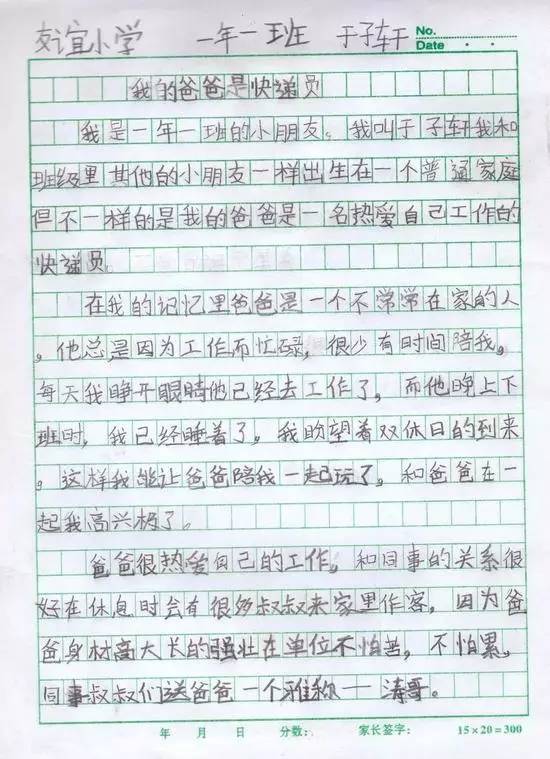 友谊小学 一年一班 于子轩 No.
Date · ·
我的爸爸是快递员
我是一年一班的小朋友。我叫于子轩我和
班级里其他的小朋友一样出生在一个普通家庭
但不一样的是我的爸爸是一名热爱自己工作的
快递员。
在我的记忆里爸爸是一个不常常在家的人
。他总是因为工作而忙碌,很少有时间陪我。
每天我睁开眼睛他已经去工作了,而他晚上下
班时,我已经睡着了。我盼望着双休日的到来
。这样我能让爸爸陪我一起玩了。和爸爸在一
起我高兴极了。
爸爸很热爱自己的工作。和同事的关系很
好在休息时会有很多叔叔来家里作客,因为爸
爸身材高大长的强壮在单位不怕苦,不怕累。
同事叔叔们送爸爸一个雅称一涛哥。
年 月 日 分数: 家长签字: 15×20=300